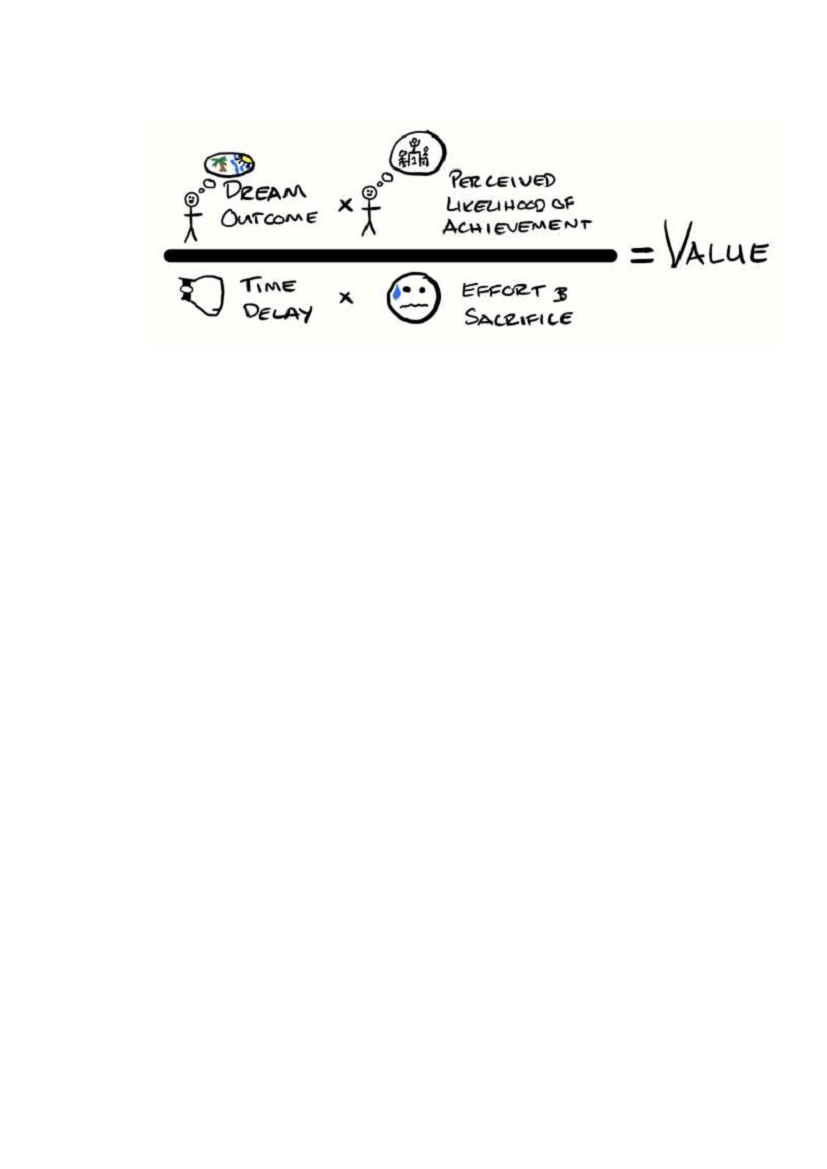 DREAM
OUTCOME
x
PERCEIVED
LIKELIHOOD OF
ACHIEVEMENT
= VALUE
TIME
DELAY
x
EFFORT &
SACRIFICE